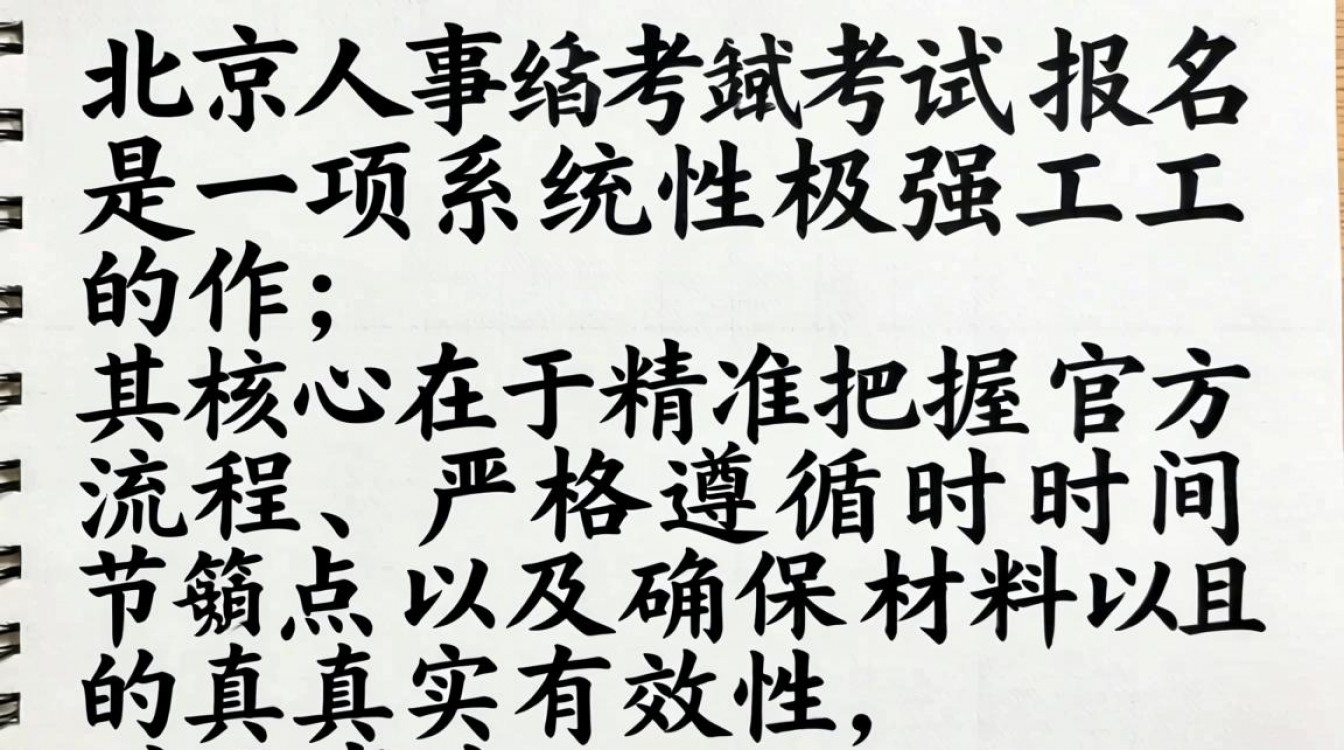 北京人事考考试报名
是一项系统性极强工工
的作；
其核心在于精准把握官方
流程、严格遵循时时间
节点以及确保材料以且
的真真实有效性，